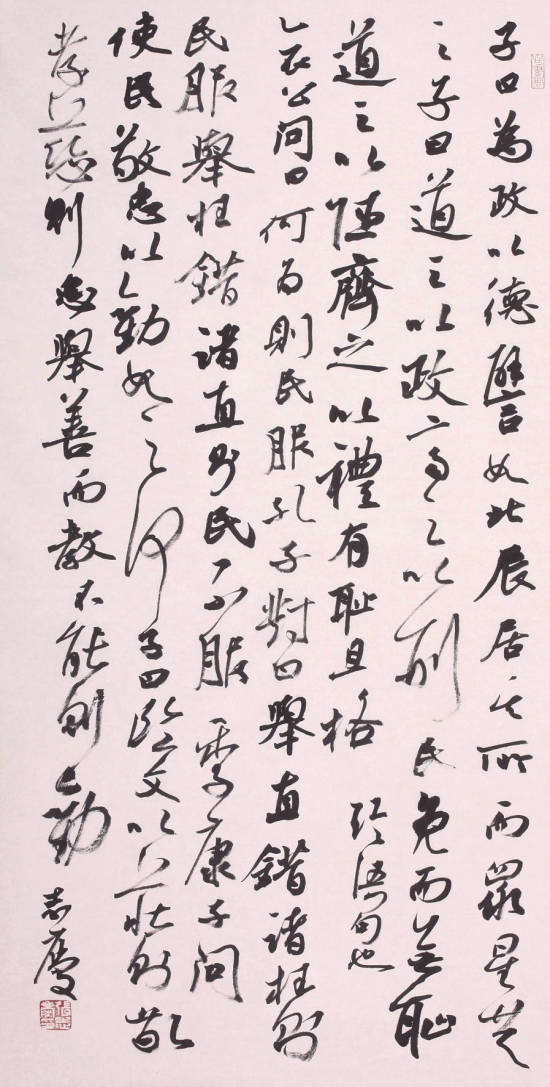 子曰為政以德譬如北辰居其所而眾星共
之子曰道之以政齊之以刑民免而無恥
道之以德齊之以禮有恥且格 論語句也
哀公問曰何為則民服孔子對曰舉直錯諸枉則
民服舉枉錯諸直則民不服季康子問
使民敬忠以勸如之何子曰臨之以莊則敬
孝慈則忠舉善而教不能則勸 志慶